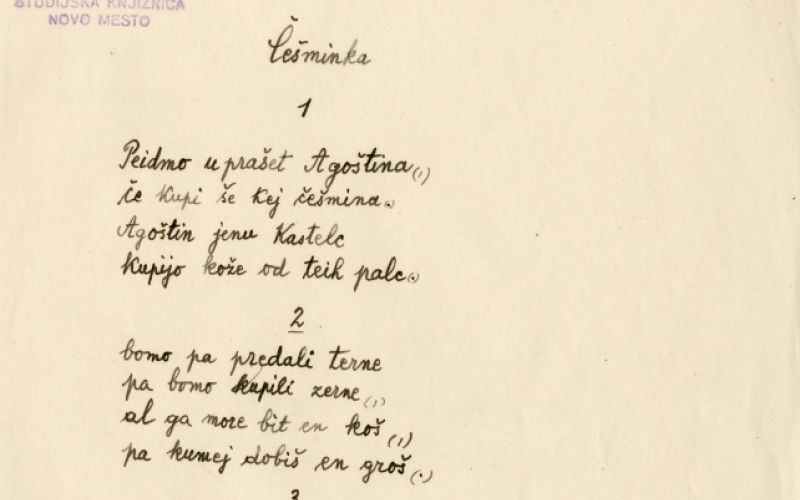 ŠTUDIJSKA KNJIŽNICA
NOVO MESTO
Češminka
1
Peidmo uprašet Agoština(,)
če kupi še kej češmina.
Agoštin jenu Kastelc
kupijo kože od teih palc(.)
2
bomo pa predali terne
pa bomo kupili zerne(,)
al ga more bit en koš(,)
pa kumej dobiš en groš(.)
3